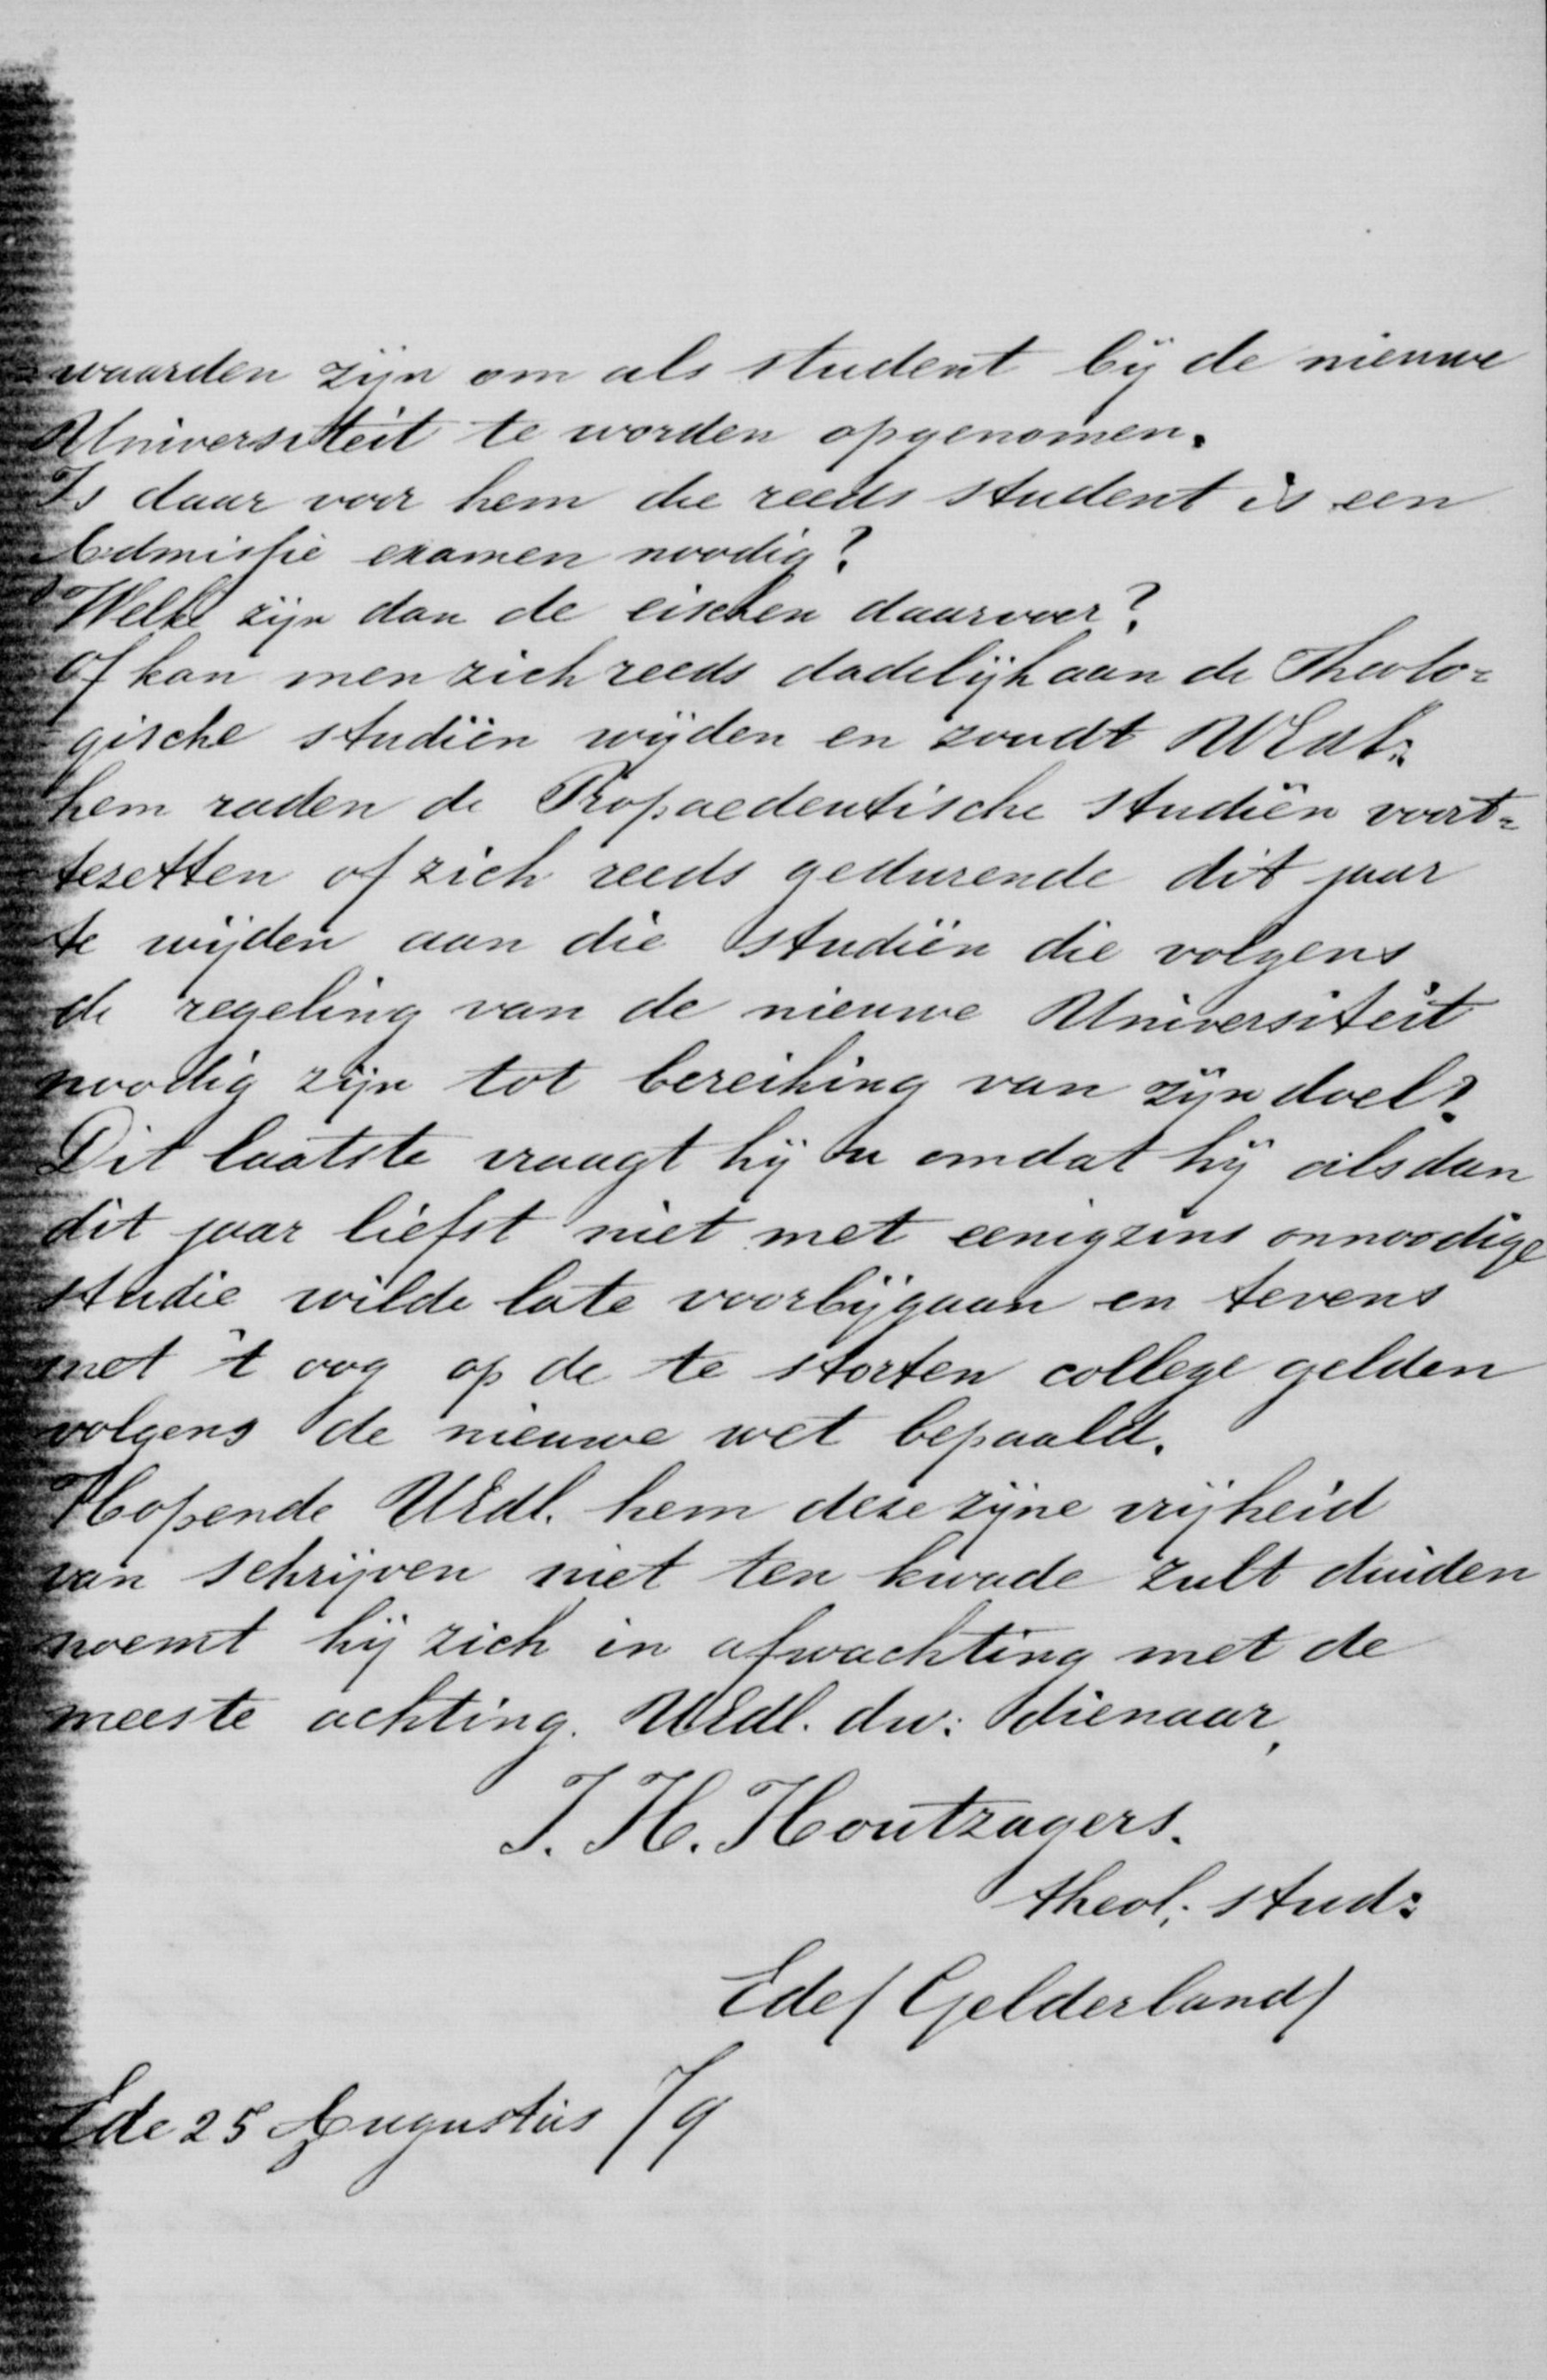 waarden zijn om als student bij de nieuwe
Universiteit te worden opgenomen.
Is daar voor hem die reeds student is een
Admissie examen noodig?
Welke zijn dan de eischen daarvoor?
Of kan men zich reeds dadelijk aan de Theolo=
gische studiën wijden en zoudt UWEdl:
hem raden de Propaedeutische studiën voort=
tezetten of zich reeds gedurende dit jaar
te wijden aan die studiën die volgens
de regeling van de nieuwe Universiteit
noodig zijn tot bereiking van zijn doel?
Dit laatste vraagt hij u omdat hij alsdan
dit jaar liefst niet met eenigzins onnoodige
studie wilde late voorbijgaan en tevens
met 't oog op de te storten college gelden
volgens de nieuwe wet bepaald.
Hopende UEdl. hem deze zijne vrijheid
van schrijven niet ten kwade zult duiden
noemt hij zich in afwachting met de
meeste achting. UEdl. dw: dienaar,
J. H. Houtzagers.
theol; stud:
Ede (Gelderland)
Ede 25 Augustus /79